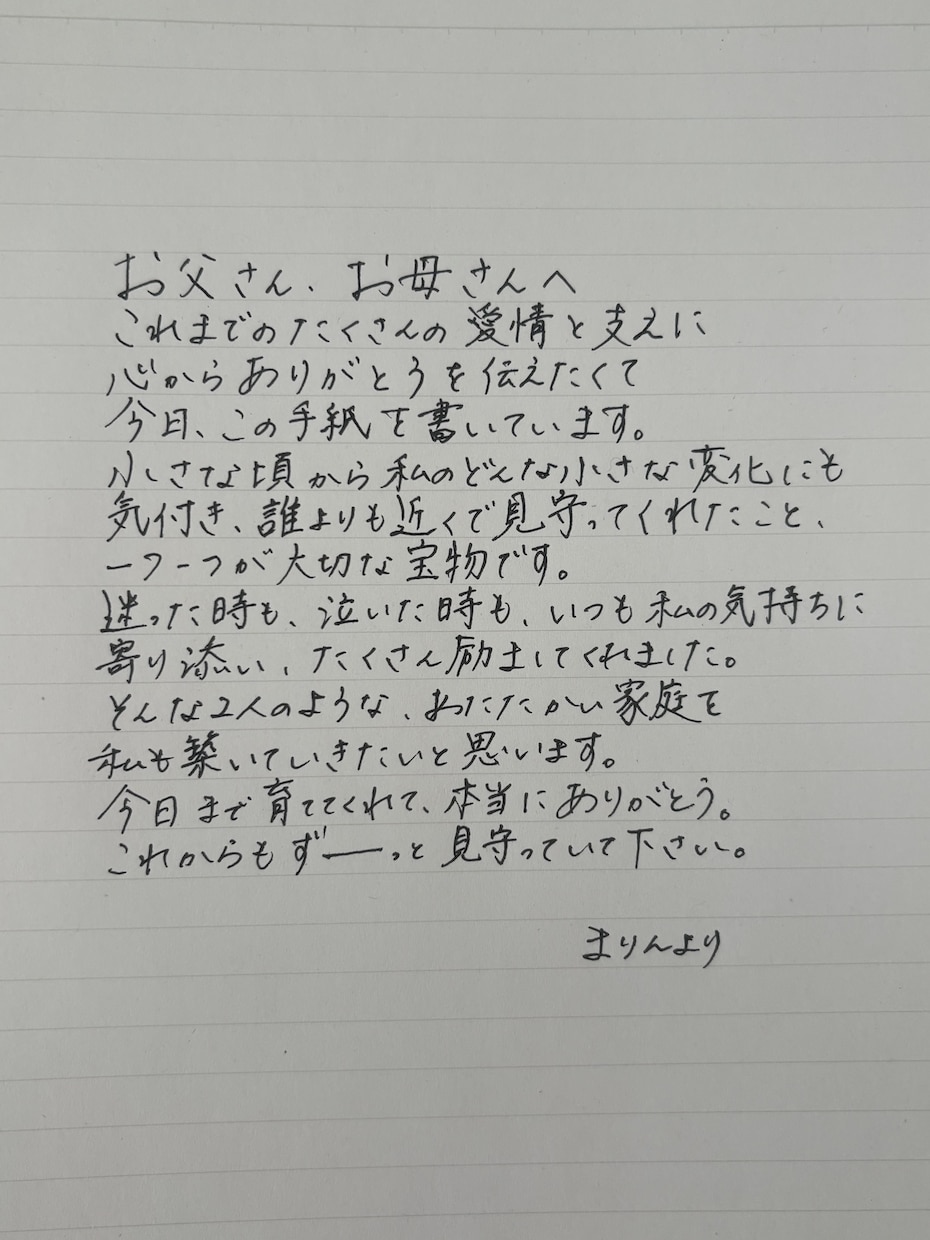 お父さん、お母さんへ
これまでのたくさんの愛情と支えに
心からありがとうを伝えたくて
今日、この手紙を書いています。
小さな頃から私のどんな小さな変化にも
気付き、誰よりも近くで見守ってくれたこと、
一つ一つが大切な宝物です。
迷った時も、泣いた時も、いつも私の気持ちに
寄り添い、たくさん励ましてくれました。
そんな2人のような、あたたかい家庭を
私も築いていきたいと思います。
今日まで育ててくれて、本当にありがとう。
これからもずーっと見守っていて下さい。
まりんより